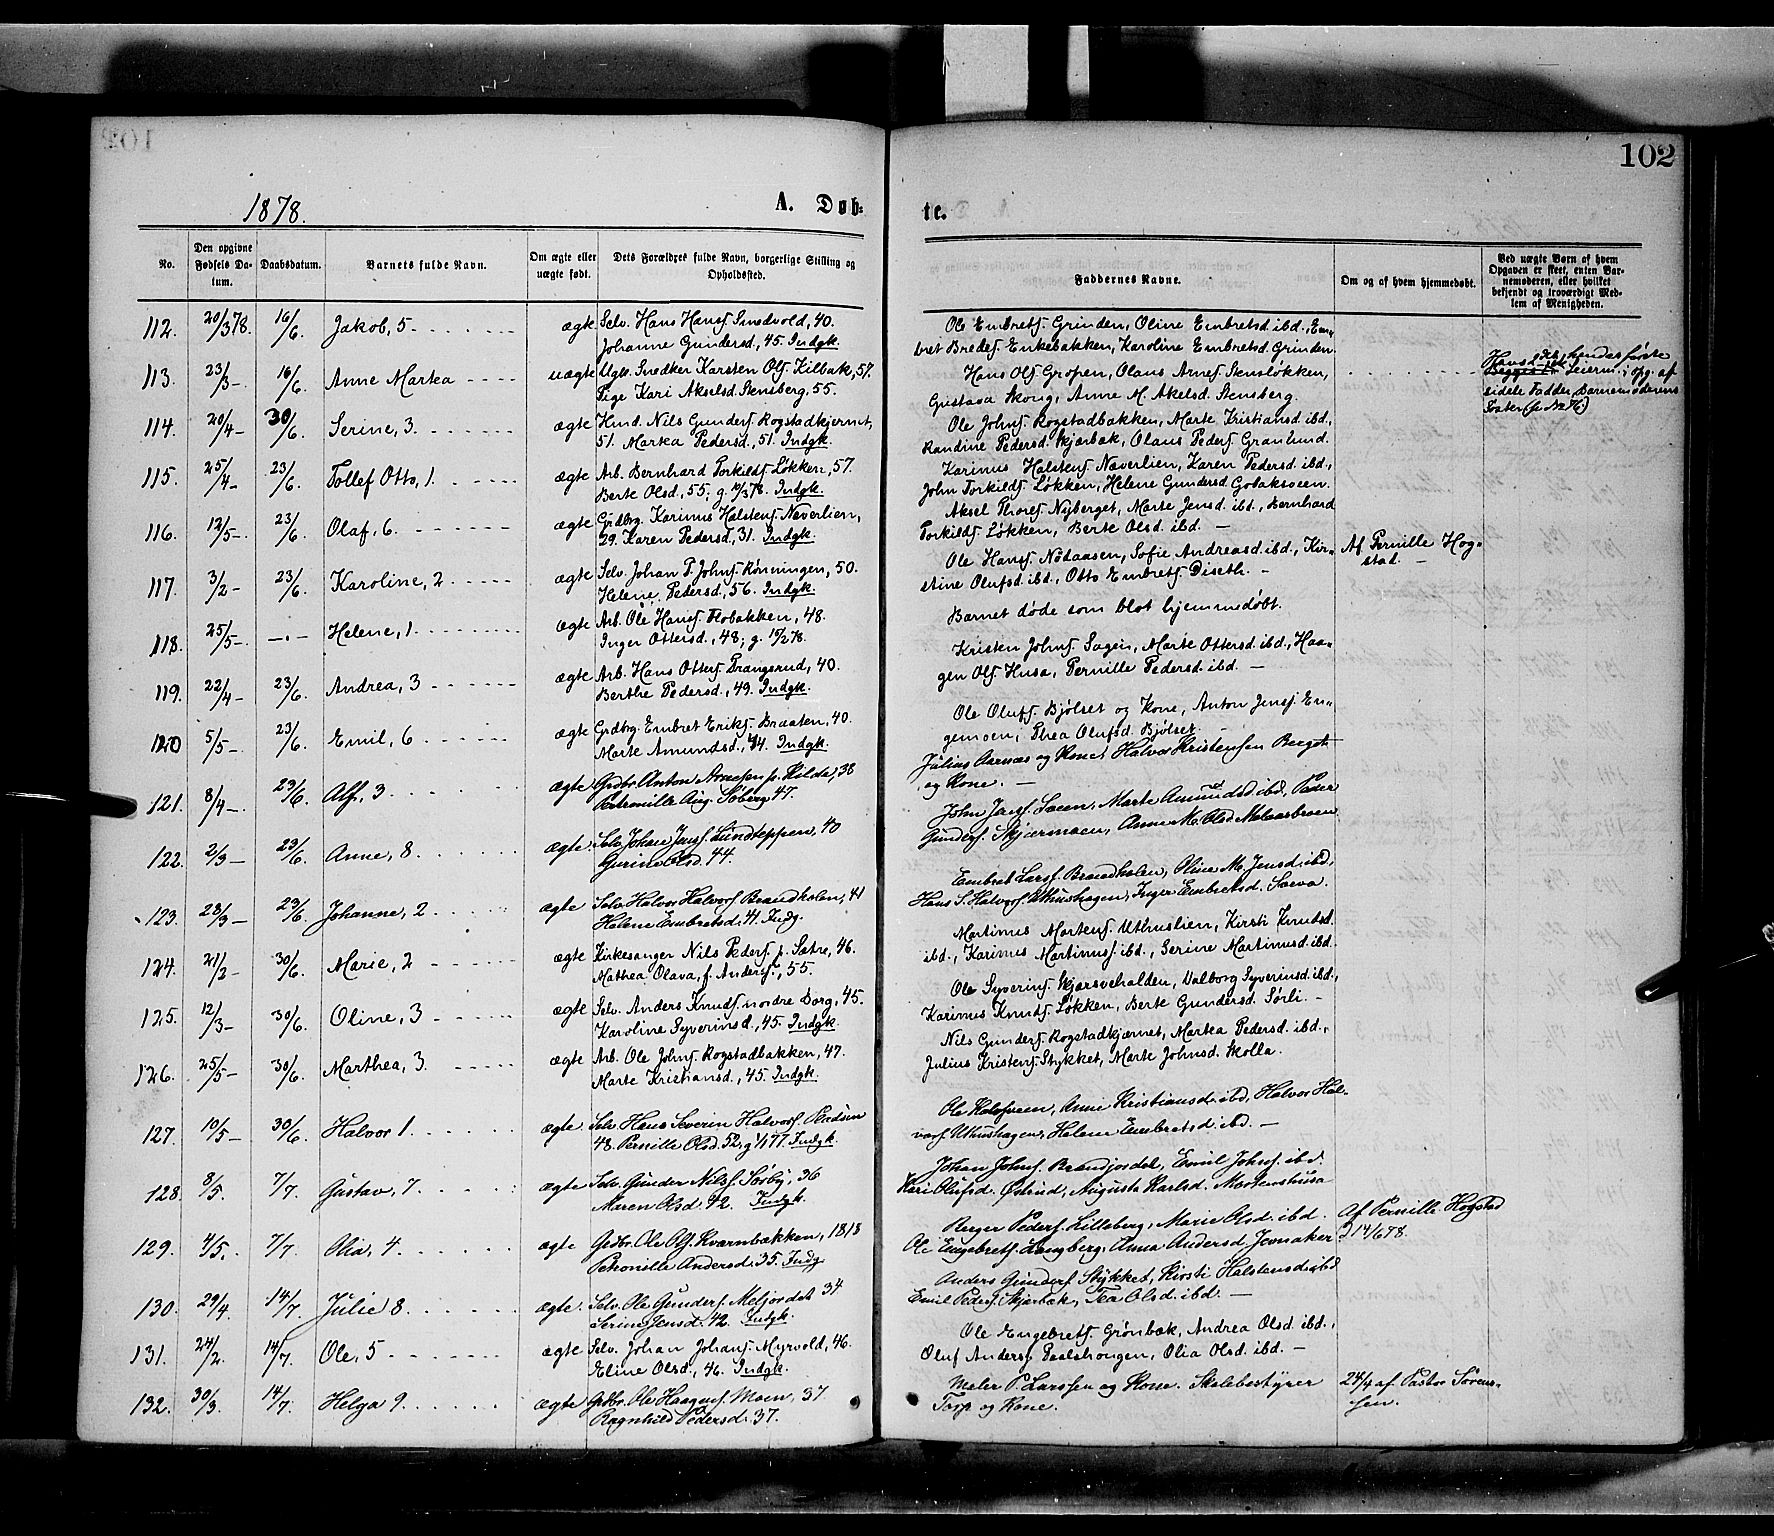 102
1878.
A. Døb-
te.
No.
Den opgivne Fødsels Datum.
Daabsdatum.
Barnets fulde Navn.
Om ægte eller uægte født.
Dets Forældres fulde Navn, borgerlige Stilling og Opholdssted.
Faddernes Navne.
Om og af hvem hjemmedøbt.
Ved uægte Børn af hvem Opgaven er skeet, enten Barnemoderen, eller hvilket bekjendt og troværdigt Medlem af Menigheden.
112. 20/3 78. 16/6 Jakob, 5 ægte Selv. Hans Hansf. Smedvold, 40.
Johanne Gundersd., 45. Indgk.
Ole Embretsf. Grinden, Oline Embretsd. ibd., Em-
bret Bredef. Enkebakken, Karoline Embretsd. Grinden.
113. 23/3 - 16/6 Anne Marka uægte Ugk. Snedker Karsten Olf. Kilbak, 57.
Pige Kari Akselsd. Stensberg, 55.
Hans Olf. Gropen, Olaus Arnef. Stensløkken,
Gustava Skong, Anne M. Akelsd. Stensberg.
114. 20/4 - 30/6 Serine, 3. ægte Hmd. Nils Gundersf. Rogstadkjernet,
51. Marka Pedersd., 51. Indgk.
Ole Johnsf. Rogstadbakken, Marte Kristiansd. ibd.,
Randine Pedersd. Skjerbak, Olaus Pedersf. Granlund.
115. 25/4 - 23/6 Tollef Otto, 1. ægte Arb. Bernhard Torkildsf. Løkken, 57.
Berte Olsd., 55; g. 19/3 78. Indgk.
Karinus Halstensf. Naverlien, Karen Pedersd. ibd.,
John Torkildsf. Løkken, Helene Gundersd. Gobakveen.
116. 12/5 - 23/6 Olaf, 6. ægte Grdbrg. Karinus Halstensf. Naverlien,
29. Karen Pedersd., 31. Indgk.
Aksel Thoresf. Nyberget, Marte Jensd. ibd., Bernhard
Torkildsf. Løkken, Berte Olsd. ibd. -
117. 3/2 - 23/6 Karoline, 2 ægte Selv. Johan P. Johnsf. Rønningen, 50.
Helene Pedersd., 56. Indgk.
Ole Hansf. Nødaasen, Sofie Andreasd. ibd., Kir-
stine Olufsd. ibd., Otto Embretsf. Diseth. -
Af Pernille Hog-
stad. -
118. 25/5 -. -"- Helene, 1. ægte Arb. Ole Hansf. Flobakken, 48.
Inger Ottersd., 48; g. 19/2 78.
Barnet døde som blot hjemmedøbt.
119. 22/4 - 23/6 Andrea, 3 ægte Arb. Hans Ottersf. Prangerud, 40.
Berthe Pedersd., 49. Indgk.
Kristen Johnsf. Sagen, Marte Ottersd. ibd., Haa-
gen Olf. Husa, Pernille Pedersd. ibd. -
120 5/5 - 23/6 Emil, 6 ægte Grdbrg. Embret Eriksf. Braaten, 40.
Marte Amundsd., 44. Indgk.
Ole Olufsf. Bjølset og Kone, Anton Jensf. En-
gemoen, Thea Olufsd. Bjølset.
121. 8/4 - 23/6 Alf, 3 ægte Grdbr. Anton Arnesen p. Kilde, 38
Petronille Aug. Søberg 47.
Julius Aarnæs og Kone, Halvor Kristensen Berget
og Kone. -
122. 2/3 - 23/6 Anne, 8 ægte Selv. Johan Jensf. Lundteppen, 40
Gurine Olsd. 44.
John Jensf. Saen, Marte Amundsd. ibd, Peder
Gundersf. Skjærmoen, Anne M. Olsd.
123. 23/3 - 23/6 Johanne, 2 ægte Selv. Halvor Halvorsf. Brandholen, 41
Helene Embretsd. 41. Indg.
Embret Larsf. Brandholen, Oline M. Jensd. ibd.,
Hans S. Halvorsf. Uthushagen, Inger Embretsd. Sorva.
124. 21/2 - 30/6 Marie, 2 ægte Kirkesanger Nils Pedersf. p. Sætre, 46.
Mathea Olava, f. Andersf., 55.
Martinus Mortensf. Uthuslien, Kirsti Knudsd.
ibd., Karinus Martinusf. ibd., Serine Martinusd. ibd.
125. 12/3 - 30/6 Oline, 3 ægte Selv. Anders Knudsf. nordre Borg, 45.
Karoline Syverinsd., 45. Indgk.
Ole Syverinsf. Kjørsvehalden, Valborg Syverinsd. ibd.,
Karinus Knudsf. Løkken, Berte Gundersd. Sørli. -
126. 25/5 - 30/6 Marthea, 3. ægte Arb. Ole Johnsf. Rogstadbakken, 47.
Marte Kristiansd., 45. Indgk.
Nils Gundersf. Rogstadkjærnet, Marka Pedersd. ibd.,
Julius Kristensf. Stykket, Marte Johnsd. Skolla.
127. 10/5 - 30/6 Halvor 1. ægte Selv. Hans Severin Halvorsf.
48. Pernille Olsd. 52, Indgk.
Anne Kristiansd. ibd, Halvor Hal-
vorsf. Uthushagen, Helene Embretsd. ibd. -
128. 8/5. 7/7. Gustav, 7. ægte Selv. Gunder Nilsf. Søby, 36
Maren Olsd. 42. Indgk.
Johan Johnsf. Brandjordet, Emil Johnsf. ibd.
Kari Olufsd. Østrud, Augusta Karlsd. Mortenshusa
129. 4/5. 7/7. Olia, 4. ægte Gdbr. Ole Olf. Kvarnbækken, 1818
Petronelle Andersd. 35. Indg.
Berger Pedersf. Lilleberg, Marie Olsd. ibd.
Ole Engebretsf. Langberg, Anna Andersd Jevnaker
Af Pernille Hogstad
14/6 78.
130. 29/4. 14/7. Julie 8. ægte Selv. Ole Gundersf. Meljordet 34
Serine Jensd. 42. Indgk.
Anders Gundersf. Stykket, Kirsti Halstensd. ibd
Emil Pedersf. Skjærbæk, Tea Olsd. ibd. -
131. 24/2. 14/7. Ole, 5 ægte Selv. Johan Johansf. Myrvold, 46.
Eline Olsd., 46. Indgk.
Ole Engebretsf. Grønbæk, Andrea Olsd. ibd.,
Oluf Andersf. Paalshongen, Olia Olsd. ibd. -
132. 30/3. 14/7. Helga 9. ægte Gdbr. Ole Haagensf. Moen, 37
Ragnhild Pedersd. 37.
Maler P. Larssen og Kone. Skolebestyrer
Torp og Kone.
24/4 af Pastor Sørens-
sen.